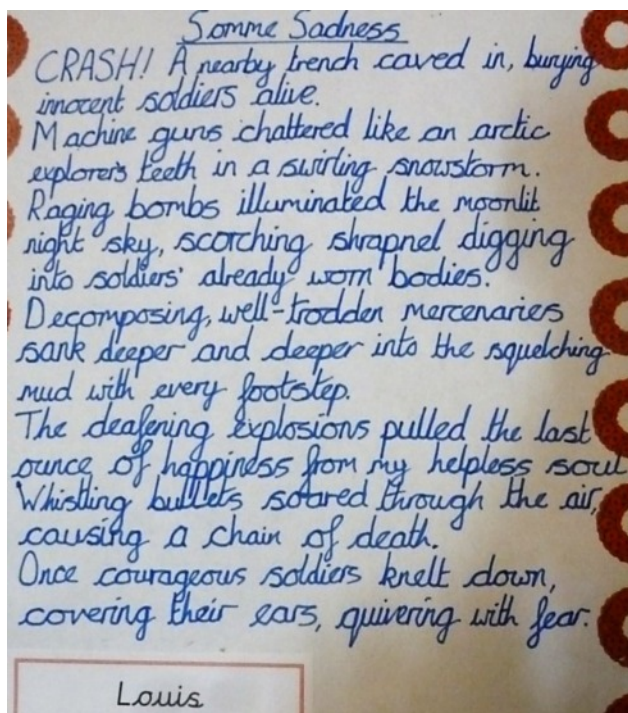 Somme Sadness
CRASH! A nearby trench caved in, burying
innocent soldiers alive.
Machine guns chattered like an arctic
explorer's teeth in a swirling snowstorm.
Raging bombs illuminated the moonlit
night sky, scorching shrapnel digging
into soldiers' already worn bodies.
Decomposing, well-trodden mercenaries
sank deeper and deeper into the squelching
mud with every footstep.
The deafening explosions pulled the last
ounce of happiness from my helpless soul
Whistling bullets soared through the air,
causing a chain of death.
Once courageous soldiers knelt down,
covering their ears, quivering with fear.
Louis